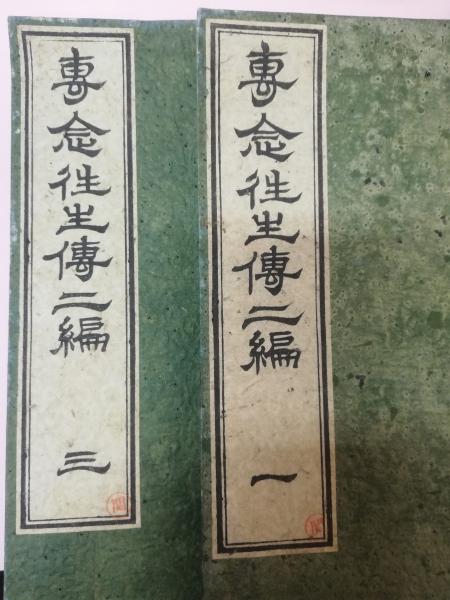 專念往生傳二編 一
專念往生傳二編 三